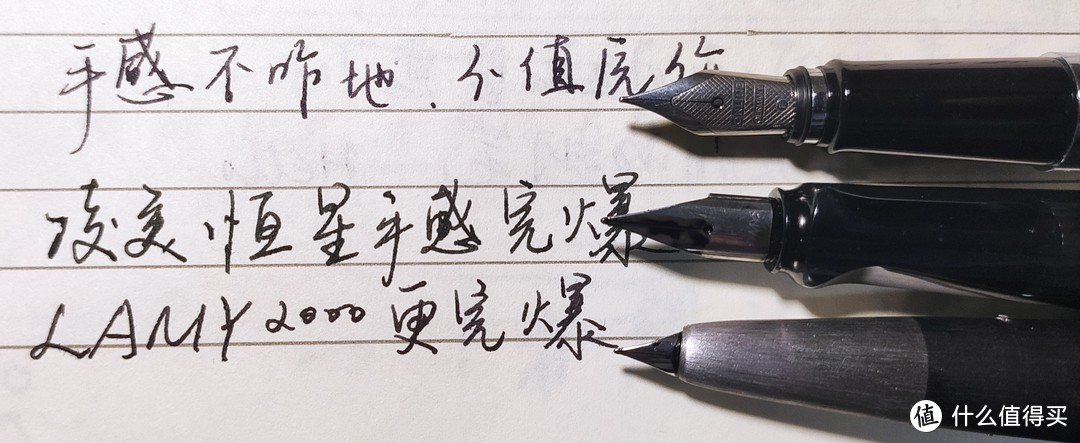 手感不咋地.不值原价
凌美恒星手感完爆
LAMY 2000更完爆
值 什么值得买